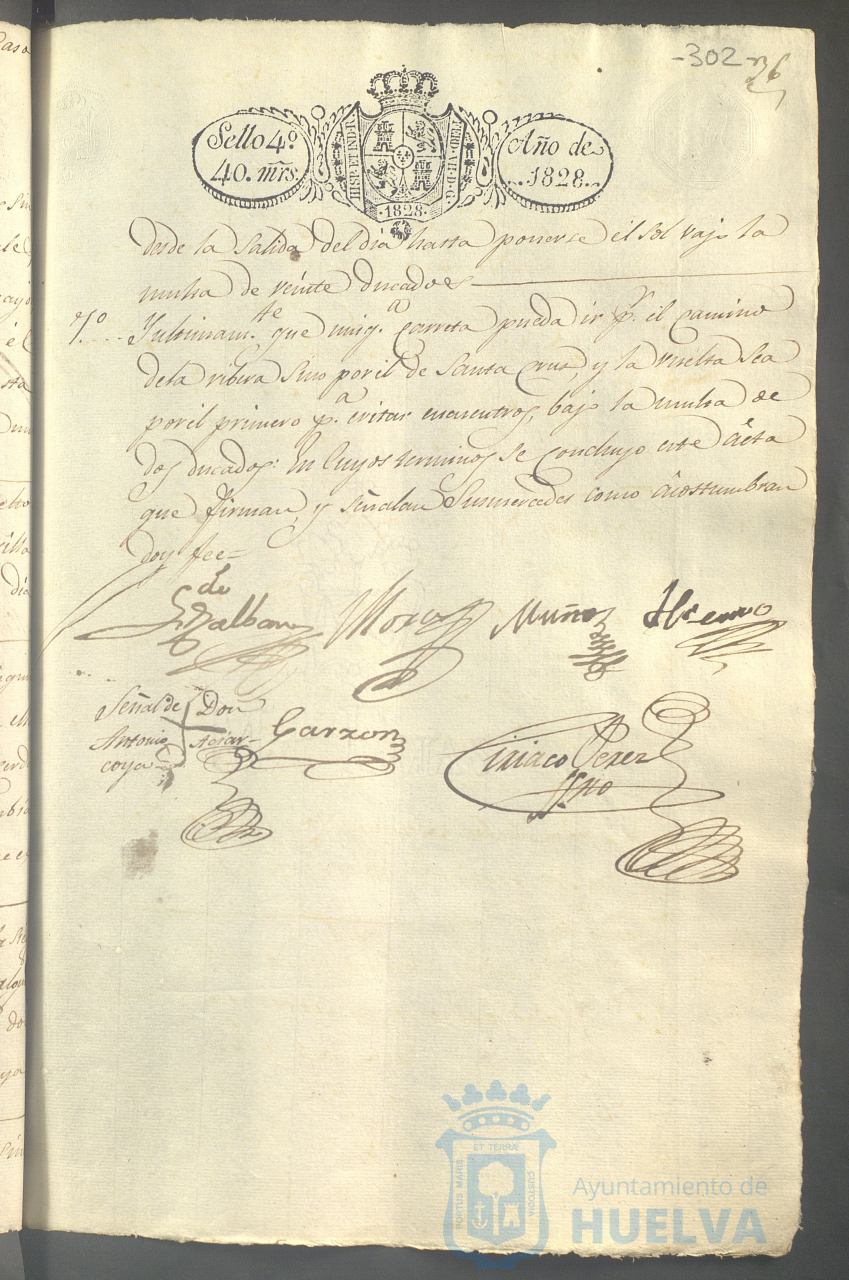 -302-
36
Sello 4º
40. mrs.
HISP. ET IND. R.
FERD. VII. D. G.
·1828·
Año de
1828.
desde la Salida del dia hasta ponerse el sol vajo la
multa de veinte ducados
7º Y ultimam.te que ning.a carreta pueda ir p.r el camino
dela rivera sino por el de Santa Cruz, y la vuelta sea
por el primero p.a evitar encuentros, bajo la multa de
dos ducados: En cuyos terminos se concluyo este acta
que firman, y señalan Sus mercedes como acostumbran
doy fee=
Muñoz
Señal de Don
Antonio
coya
Garzon
Ciriaco Perez
Ssno
PORTUS MARIS ET TERRÆ CUSTODIA
Ayuntamiento de
HUELVA